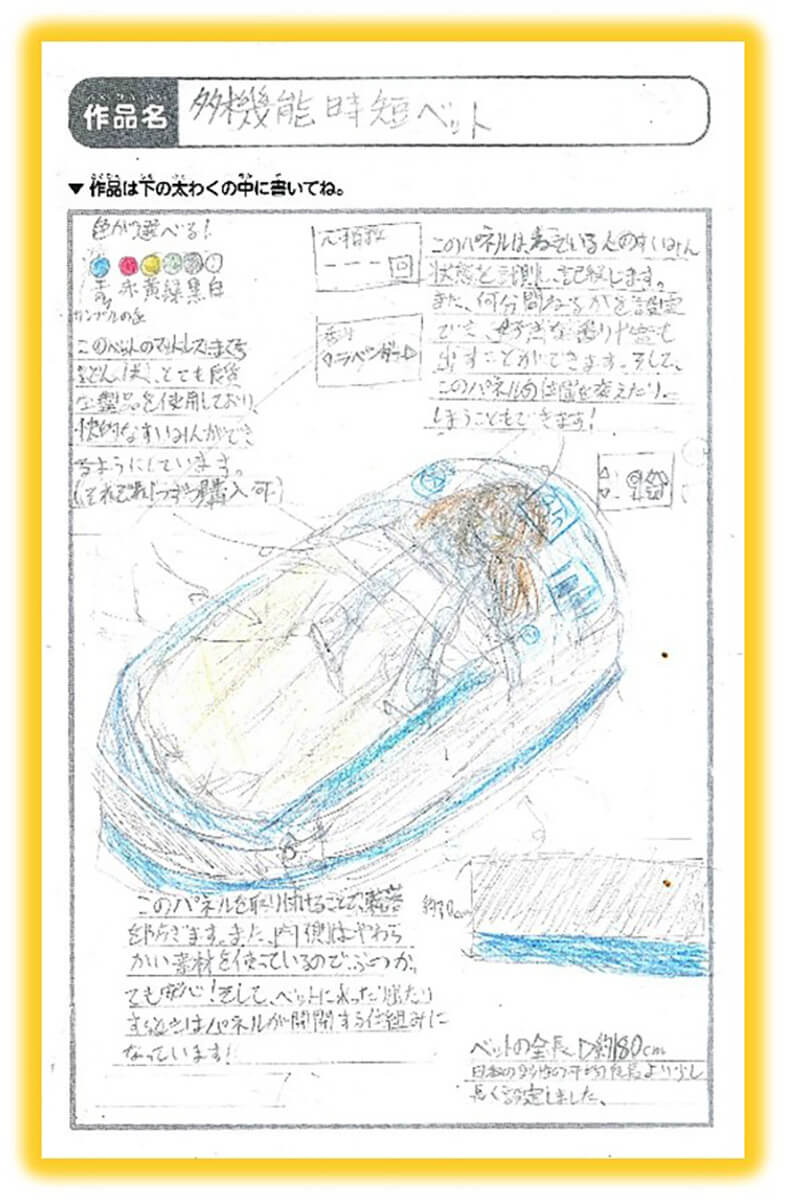 作品名
多機能時短ベット
▼作品は下の太わくの中に書いてね。
色が選べる!
青 赤 黄 緑 黒 白
サンプルの色
このベットのマットレス、まくら
ふとん(大)、とても良質
な製品を使用しており、
快的なすいみんができ
るようにしています。
(それぞれ1つずつ購入可)
香り
◁ラベンダー▷
このパネルは、ねている人のすいみん
状態を計測し、記録します。
また、何分間ねるかを設定
でき、好きな香りや音も
出すことができます。そして、
このパネルの位置を変えたり、
しまうこともできます!
このパネルを取り付けることで、転落
を防ぎます。また、内側はやわら
かい素材を使っているので、ぶつかっ
ても安心!そして、ベットに乗ったり出たり
するときはパネルが開閉する仕組みに
なっています!
ベットの全長▷約180cm
日本の男性の平均身長より少し
長く設定しました。